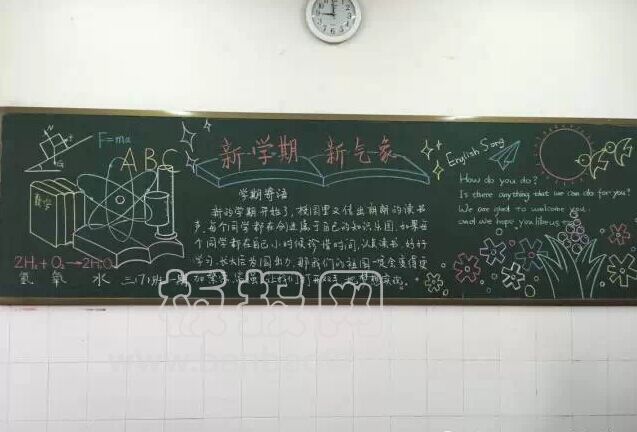 F=ma
G
ABC
数学
2H₂+O₂→2H₂O
氢 氧 水
新学期 新气象
学期寄语
新的学期开始了,校园里又传出朗朗的读书
声,每个同学都在创造属于自己的知识乐园,如果每
个同学都在自己小时候珍惜时间,认真读书,好好
学习,长大后为国出力,那我们的祖国一定会变得更
加
English Song
How do you do?
Is there anything that we can do for you?
We are glad to welcome you,
and we hope you like us
板报网